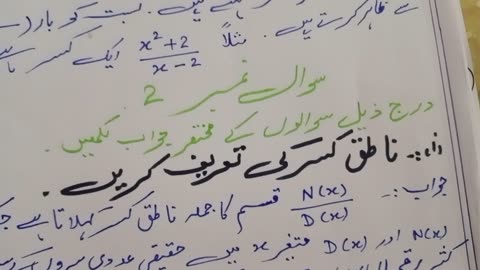 سے ظاہر کرتے ہیں۔ مثلاً x²+2 / x-2 ایک کسر
سوال نمبر 2
درج ذیل سوالوں کے مختصر جواب لکھیں۔
(i):- ناطق کسر کی تعریف کریں۔
جواب:- N(x) / D(x) قسم کا جملہ ناطق کسر کہلاتا ہے
N(x) اور D(x) متغیر x میں حقیقی عددی سروں